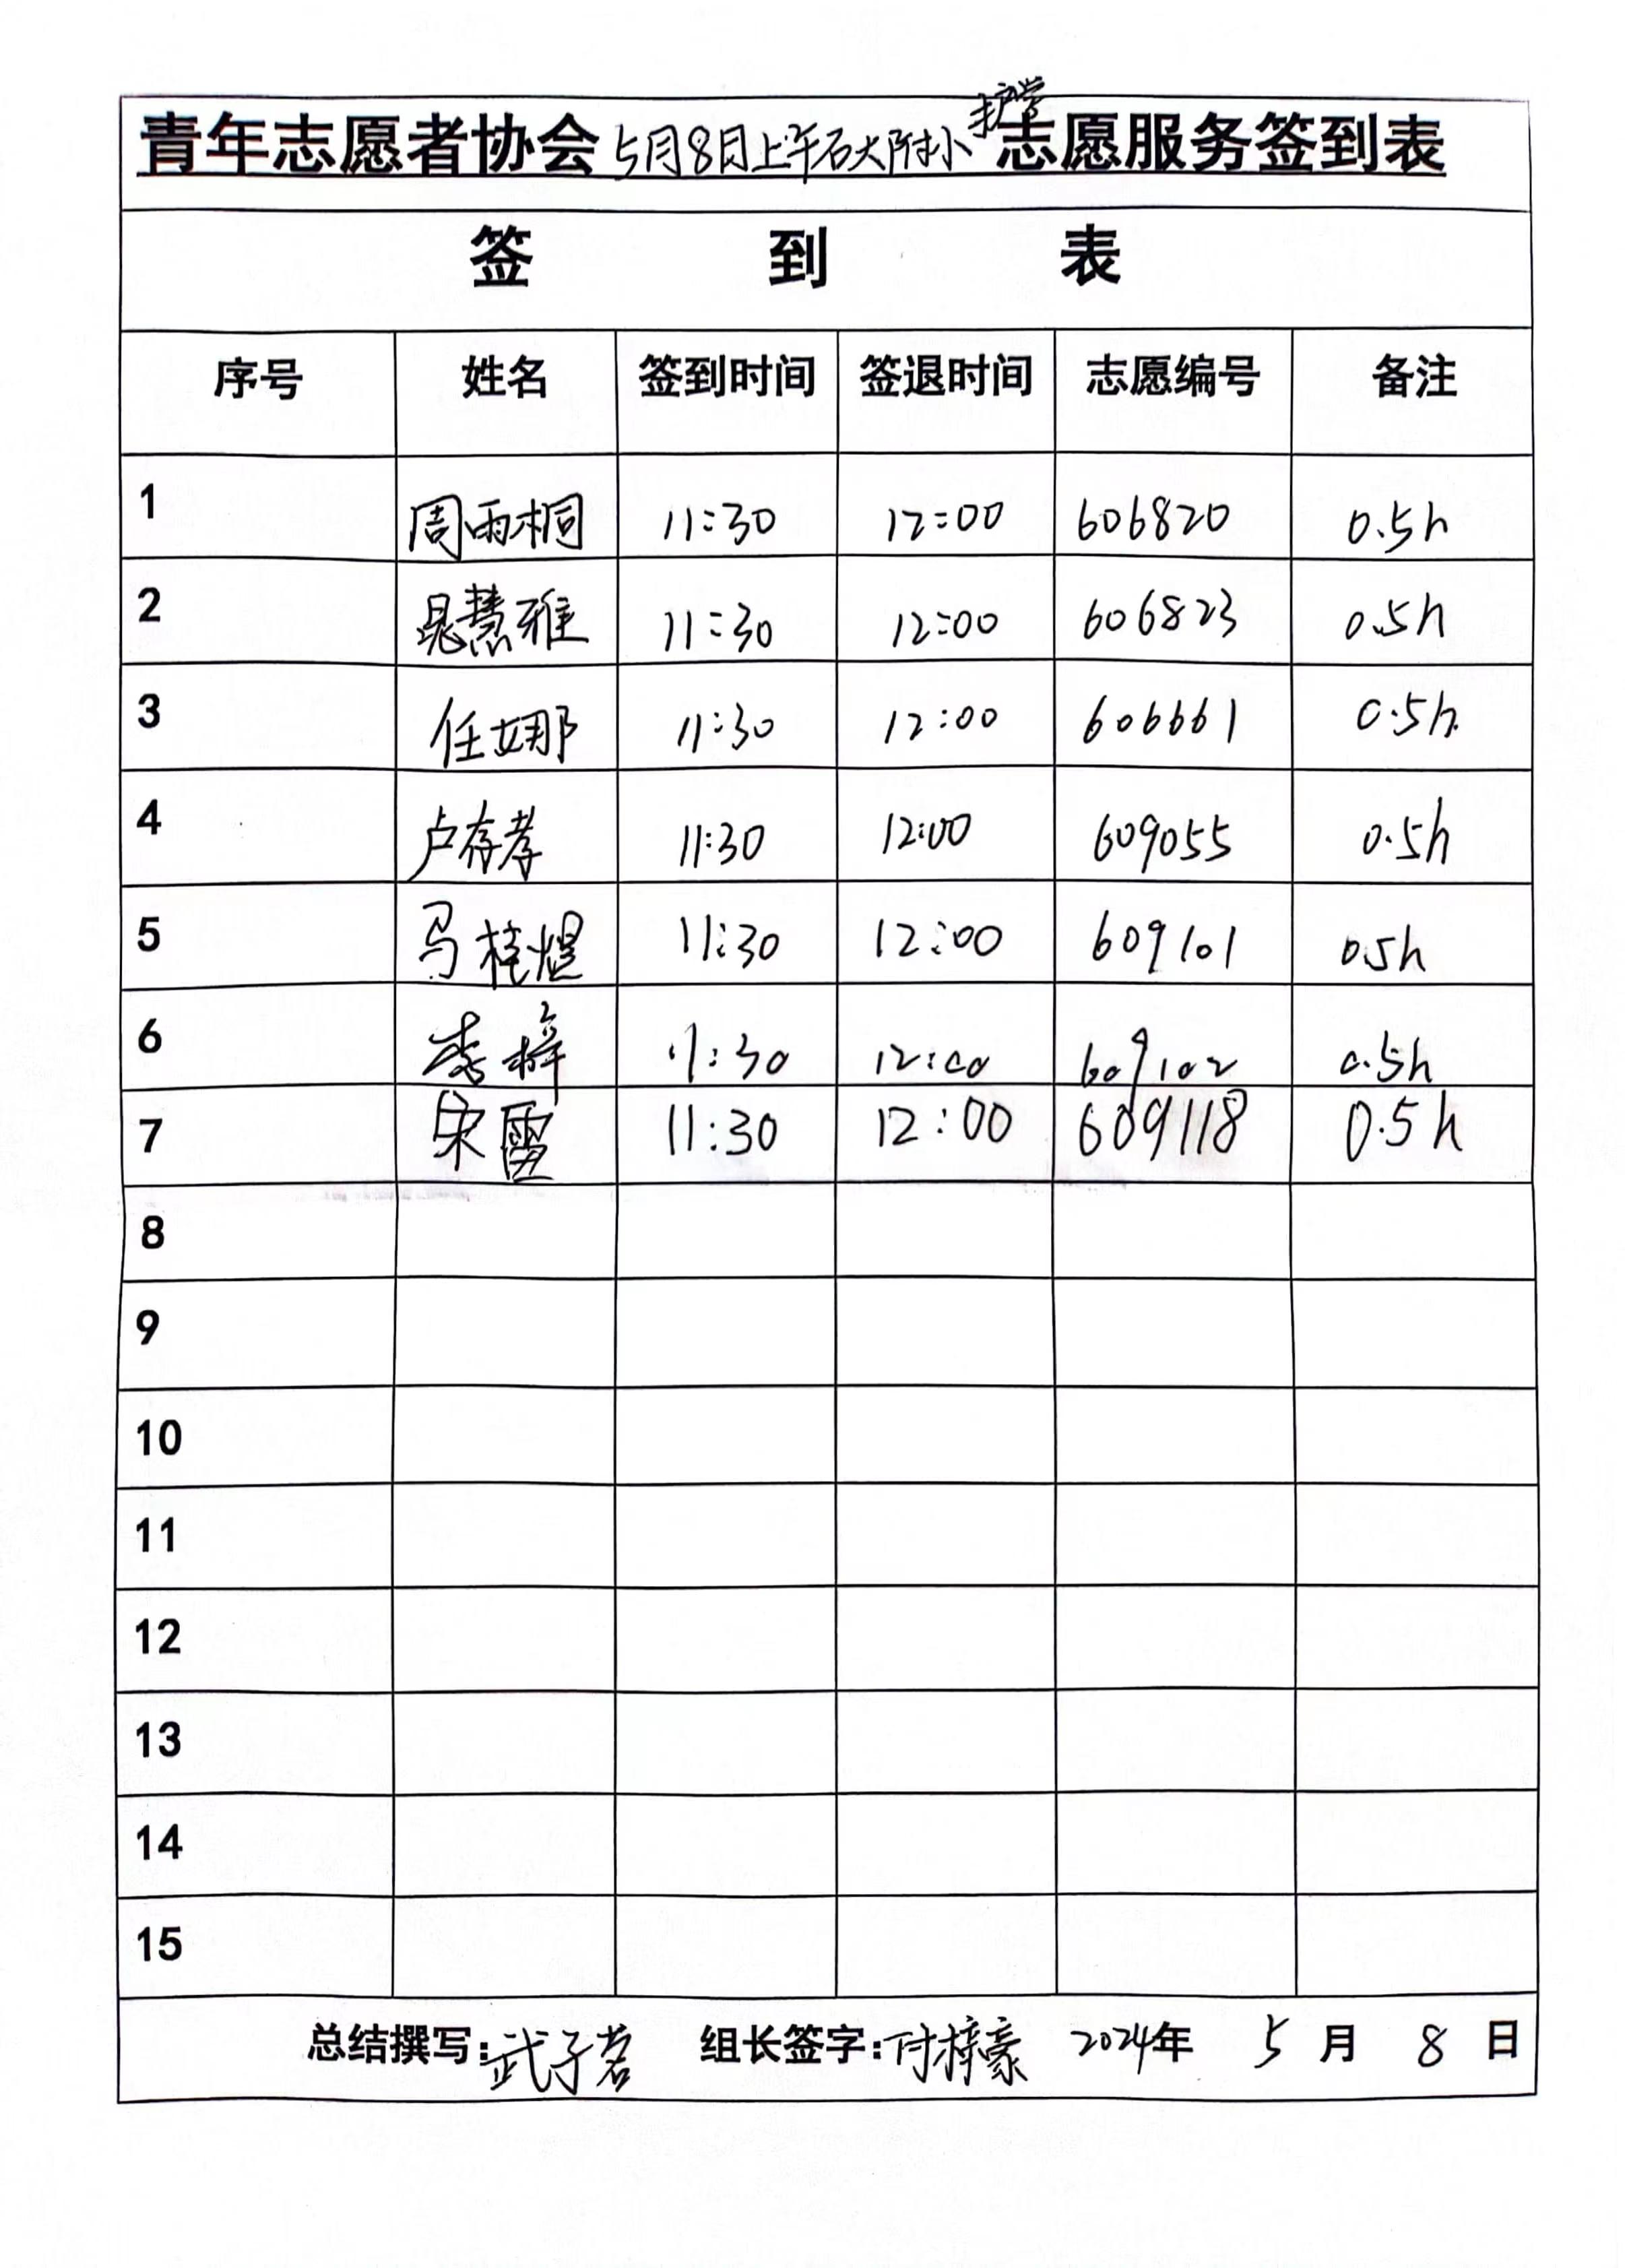 青年志愿者协会5月8日上午石大附小护学志愿服务签到表
签 到 表
序号 姓名 签到时间 签退时间 志愿编号 备注
1 周雨桐 11:30 12:00 606820 0.5h
2 晁慧雅 11:30 12:00 606823 0.5h
3 任娜 11:30 12:00 606661 0.5h
4 卢存孝 11:30 12:00 609055 0.5h
5 马桂煜 11:30 12:00 609101 0.5h
6 李梓 11:30 12:00 609102 0.5h
7 宋雷 11:30 12:00 609118 0.5h
8
9
10
11
12
13
14
15
总结撰写:武子茗 组长签字:付梓豪 2024年 5 月 8 日